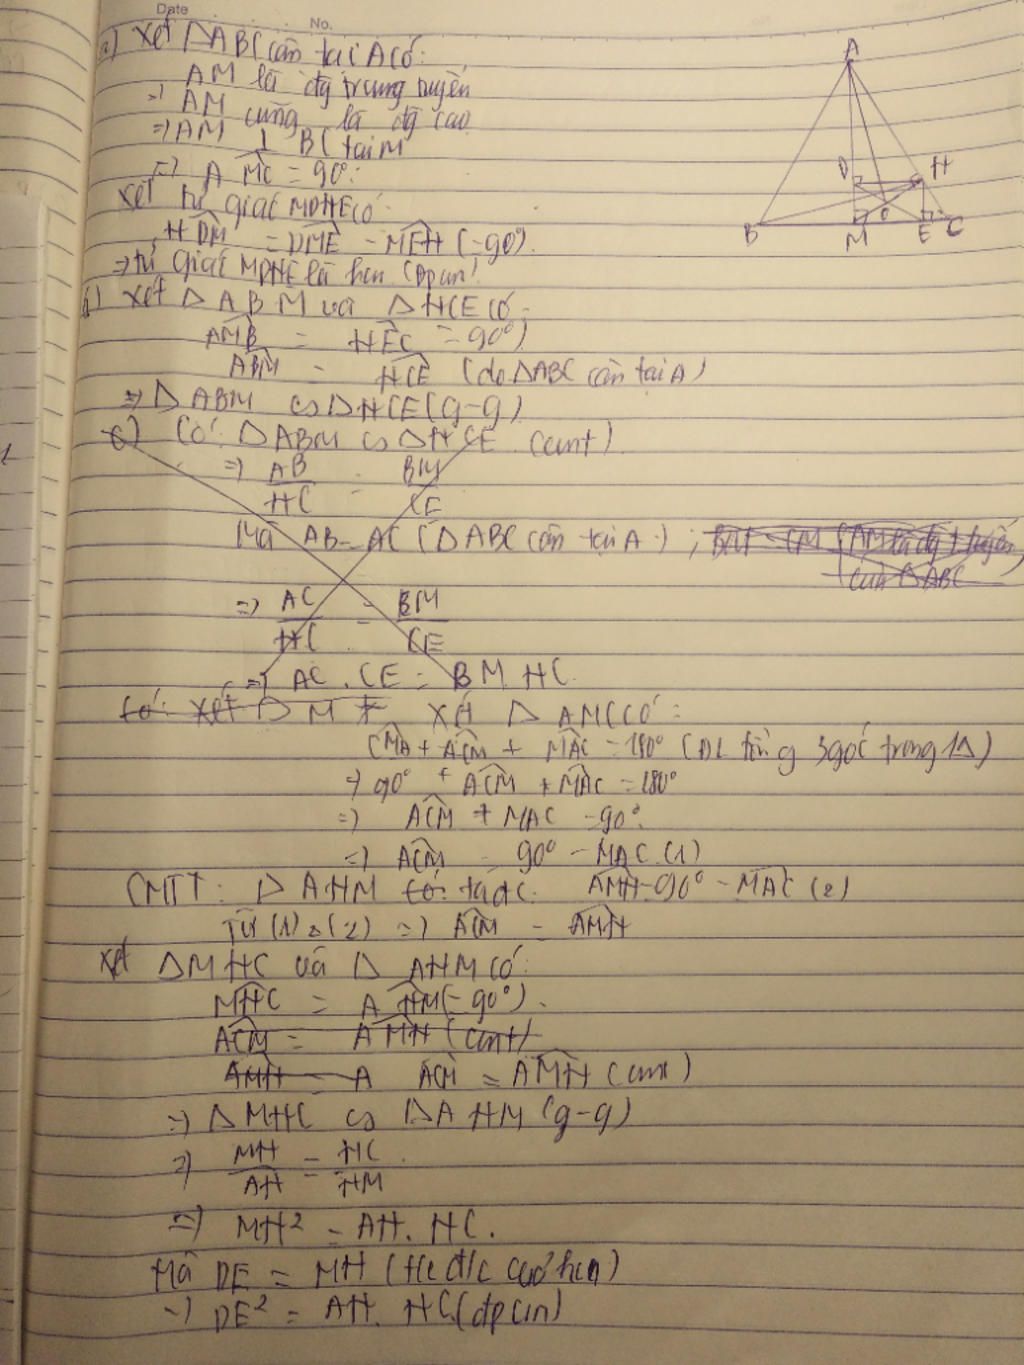 Date
No.
a) Xét ΔABC cân tại A có:
AM là đg trung tuyến
=> AM cũng là đg cao
=> AM ⊥ BC tại M
=> AMC = 90°.
Xét tứ giác MDHE có
HDM = DME = MEH (=90°).
=> tứ giác MDHE là hcn (đpcm)
Xét ΔABM và ΔHCE có:
AMB = HEC (=90°)
ABM = HCE (do ΔABC cân tại A)
=> ΔABM ∽ ΔHCE (g-g)
c) Có: ΔABM ∽ ΔHCE (cmt)
=> AB/HC = BM/CE
Mà AB = AC (ΔABC cân tại A); BM = CM (AM là đg t.tuyến
của ΔABC
=> AC/HC = BM/CE
=> AC.CE = BM.HC
Có: Xét ΔM Xét ΔAMC có:
CMA + ACM + MAC = 180° (ĐL tổng 3 góc trong 1Δ)
=> 90° + ACM + MAC = 180°
=> ACM + MAC = 90°.
=> ACM = 90° - MAC (1)
CMTT: ΔAHM có: ta đc: AMH = 90° - MAC (2)
Từ (1) & (2) => ACM = AMH
Xét ΔMHC và ΔAHM có:
MHC = AHM (=90°).
ACM = AMH (cmt)
AMH = A ACM = AMH (cmt)
=> ΔMHC ∽ ΔAHM (g-g)
=> MH/AH = HC/HM
=> MH² = AH.HC.
Mà DE = MH (t/c đ/c của hcn)
=> DE² = AH.HC (đpcm)
A
D
H
O
B
M
E
C